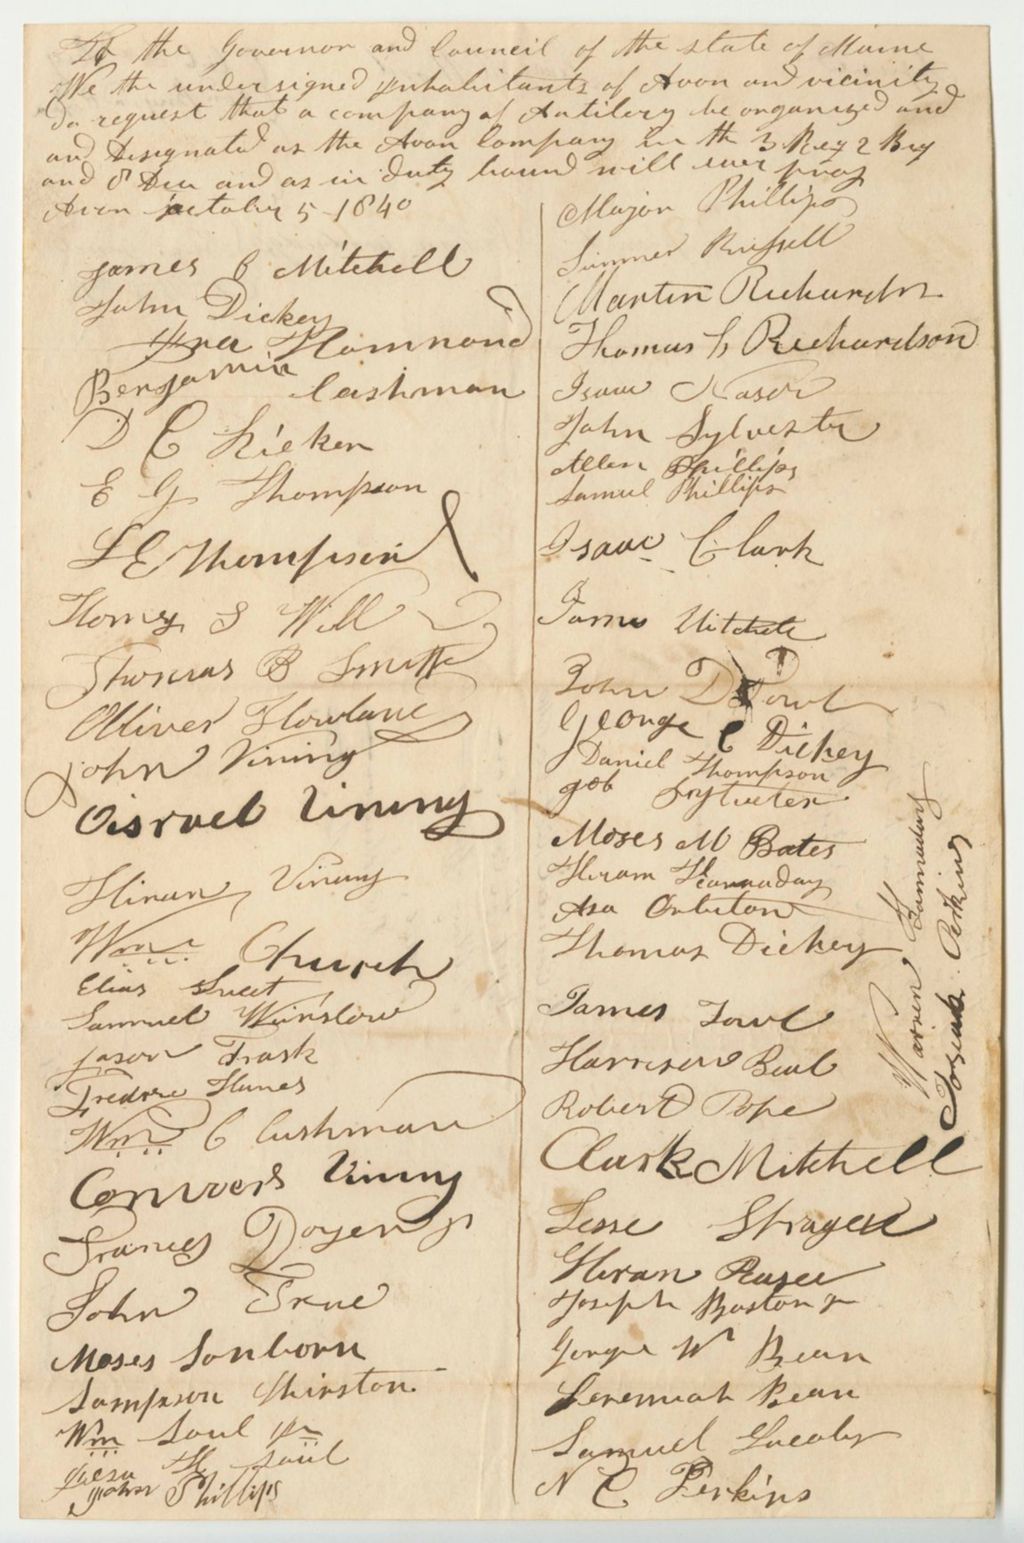 To the Governor and Council of the state of Maine
We the undersigned Inhabitants of Avon and vicinity
do request that a company of Artilery be organized and
and Designated as the Avon Company in the 3 Reg 2 Brg
and 8 Div and as in duty bound will ever pray
Avon october 5 1840
James C Mitchell
John Dickey
Ira Hammond
Benjamin Cushman
D C
E G Thompson
L E Thompson
S Will
Thomas B Smith
Olliver
John Vining
Oisrael Vining
Hiram Vining
Wm Church
Elias Sweet
Samuel Winslow
Jason Trask
Wm C Cushman
Convers Vining
Francis Doyen Jr
John
Moses Sanborn
Sampson
Wm Soul Jr
H Soul
John Phillips
Major Phillips
Sumner Russell
Martin Richardson
Thomas Richardson
Isaac
John Sylvester
Allen Phillips
Samuel Phillips
Isaac Clark
James Mitchell
John D
George C Dickey
Daniel Thompson
Job Sylvester
Moses M Bates
Hiram
Asa
Thomas Dickey
James
Harrison Beal
Robert Pope
Clark Mitchell
Jesse
Hiram
Joseph Boston Jr
George W Bean
Jeremiah Bean
Samuel
N C Perkins
Warren
Perkins